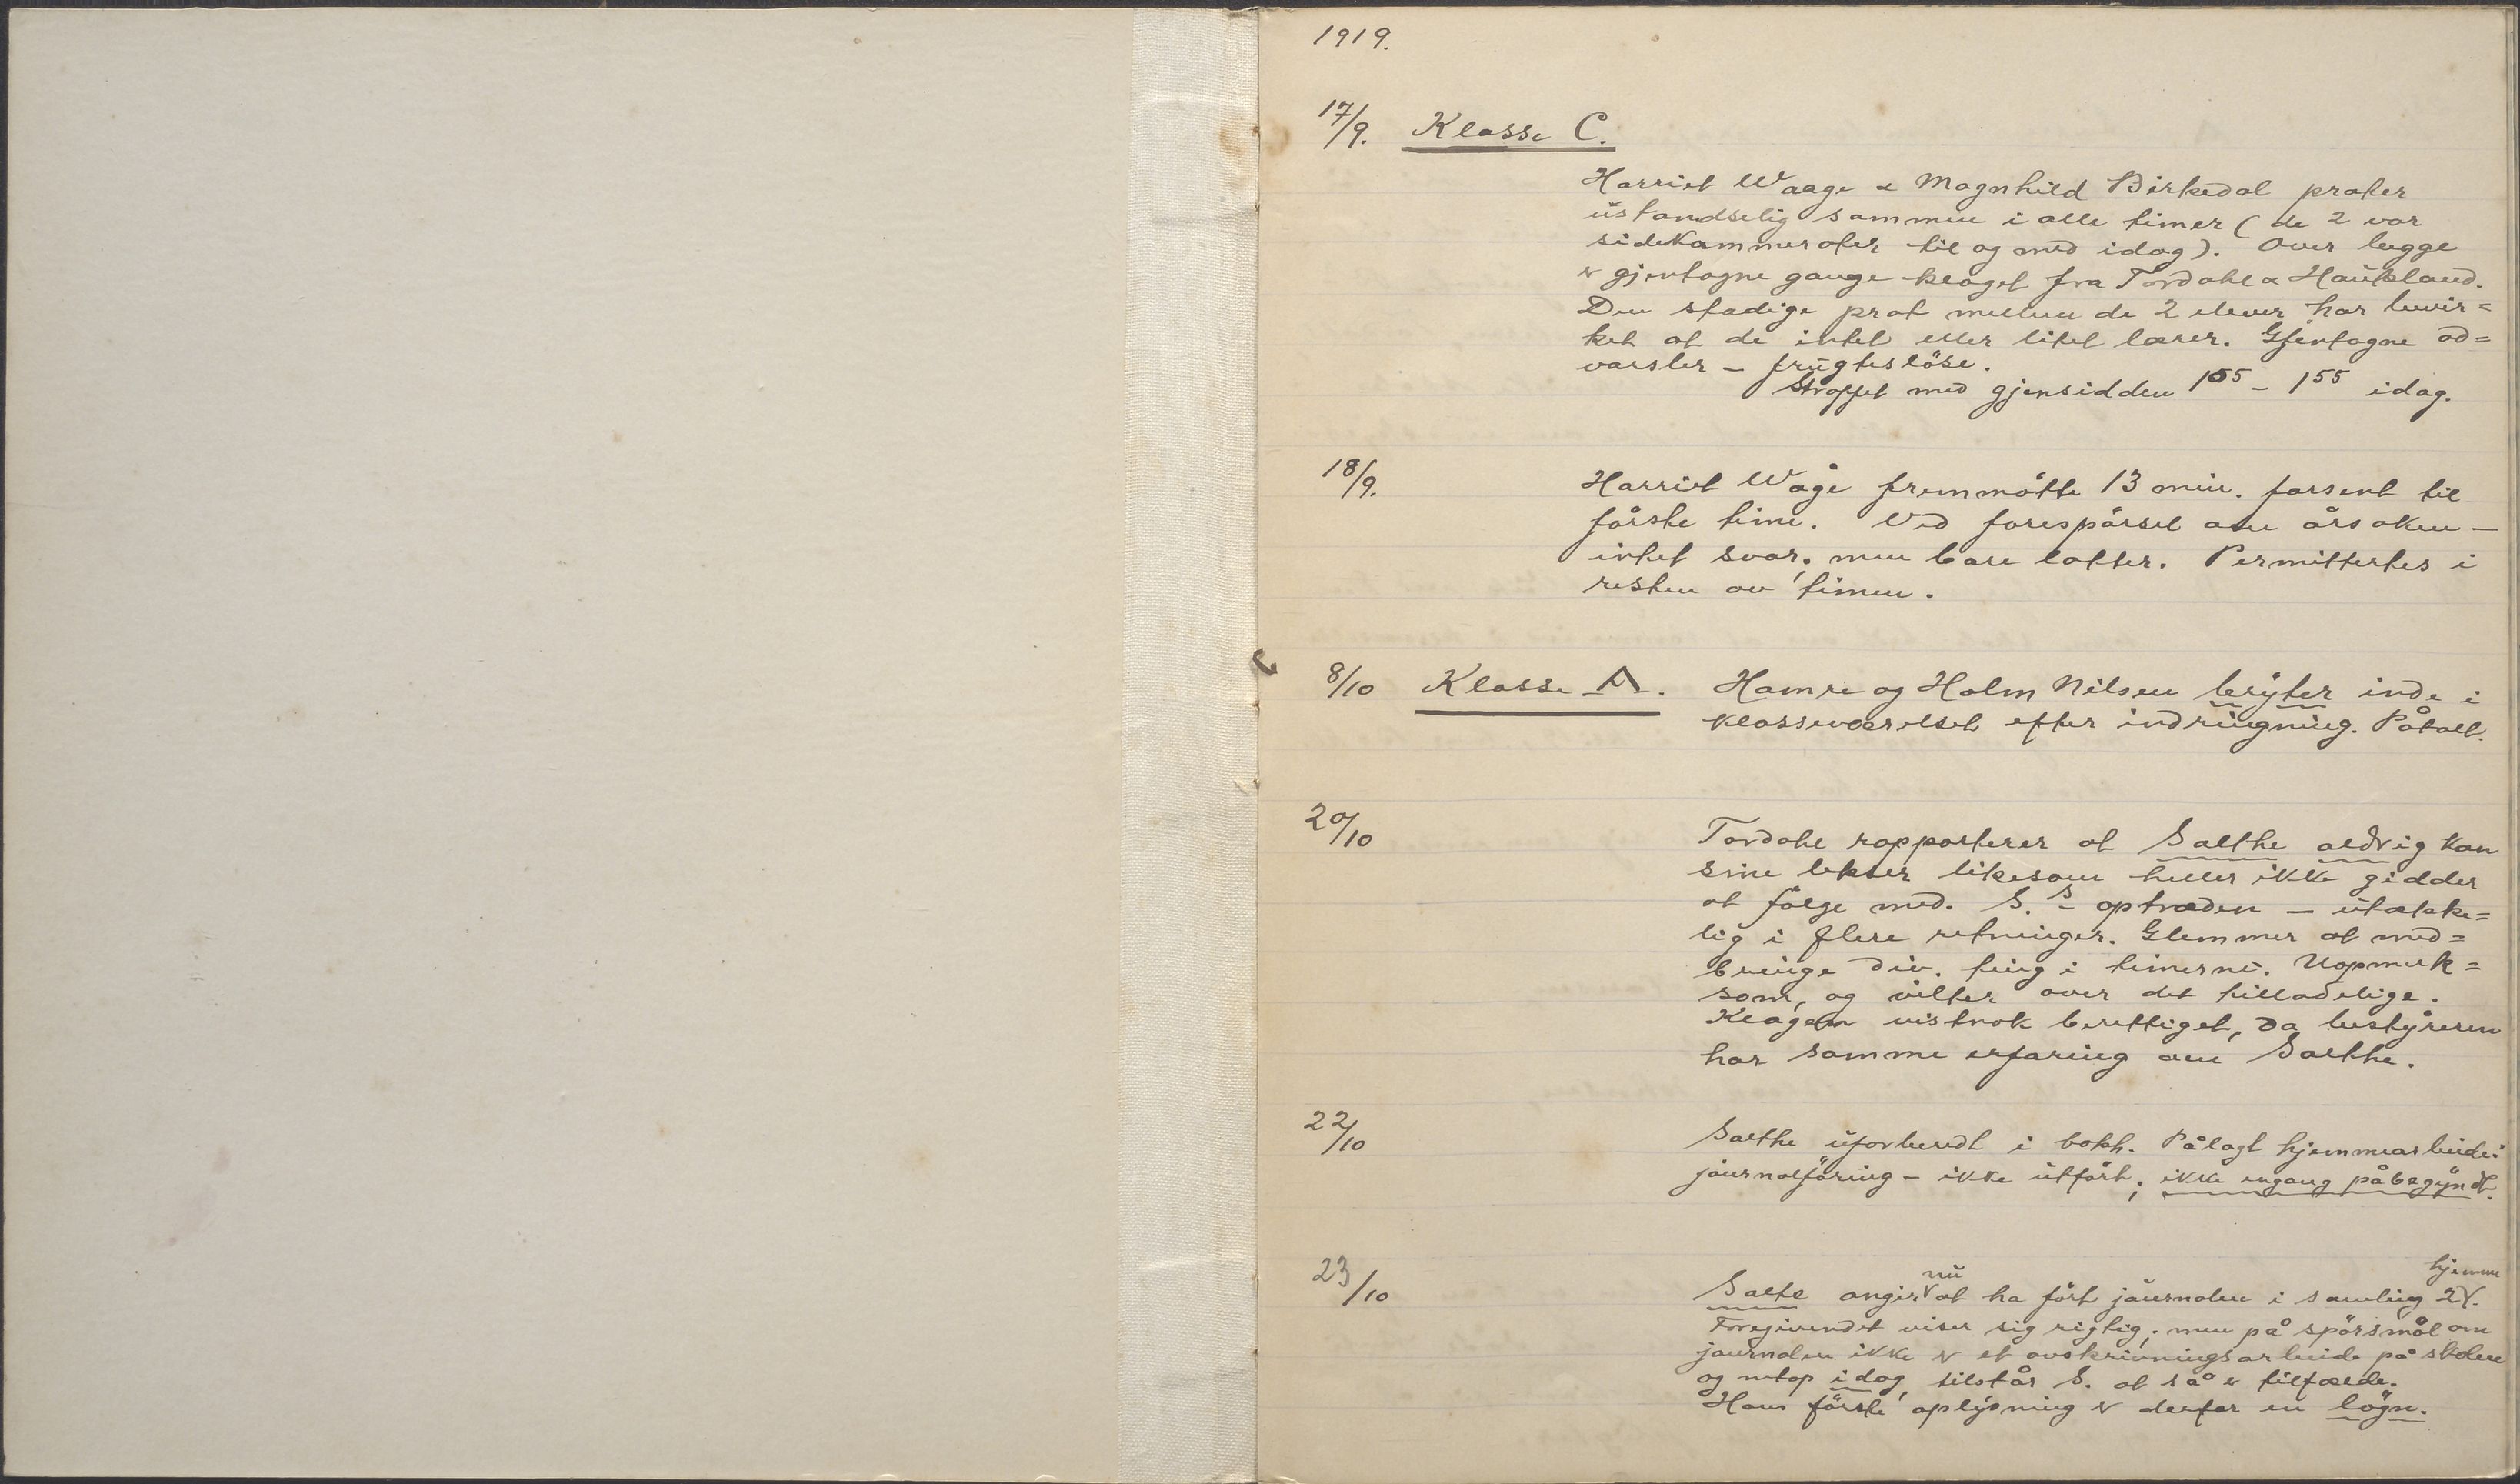 1919.
17/9. Klasse C.
Harriet Waage & Magnhild Birkedal prater
ustandselig sammen i alle timer (de 2 var
sidekammerater til og med idag). Over begge
er gjentagne gange klaget fra Tordahl & Haukland.
Den stadige prat mellem de 2 elever har bevir=
ket at de intet eller litet lærer. Gjentagne ad=
varsler – frugtesløse.
Straffet med gjensidden 1⁰⁵ – 1⁵⁵ idag.
18/9. Harriet Våge fremmötte 13 min. forsent til
förste time. Ved forespörsel om årsaken –
intet svar; men bare latter. Permittertes i
resten av timen.
8/10 Klasse A. Hamre og Holm Nilsen bryter inde i
klasseværelset efter indringning. Påtalt.
20/10 Tordahl rapporterer at Salthe aldrig kan
sine lekser likesom heller ikke gidder
at fölge med. S.s – optræden – utække=
lig i flere retninger. Glemmer at med=
bringe div. ting i timerne. Uopmerk=
som, og vilter over det tilladelige.
Klagen vistnok berettiget, da bestyreren
har samme erfaring om Salthe.
22/10 Salthe uforberedt i bokh. Pålagt hjemmearbeide i
journalföring – ikke utfört; ikke engang påbegyndt.
23/10 Salte angir nu at ha fört journalen i samling 2 hjemme.
Foregivendet viser sig rigtig; men på spörsmål om
journalen ikke er et avskrivningsarbeide på skolen
og netop idag, tilstår S. at så er tilfælde.
Hans förste oplysning er derfor en lögn.